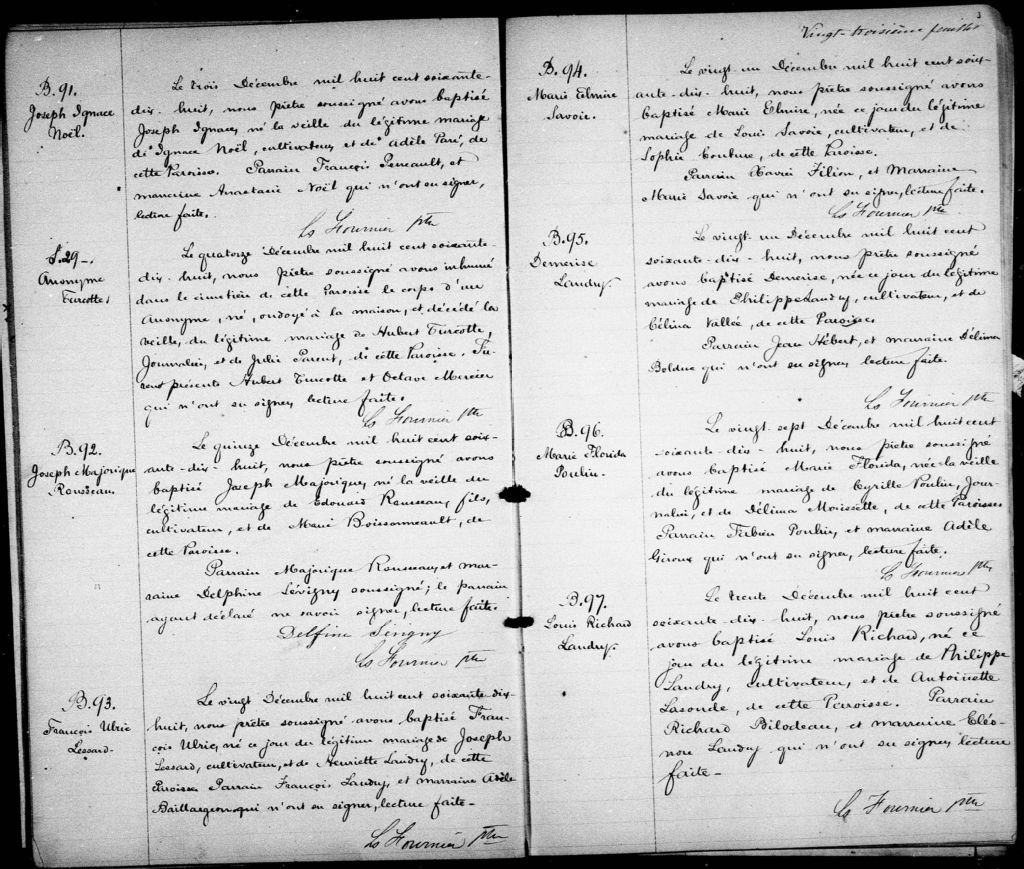 B. 91.
Joseph Ignace
Noël.
Le trois Décembre mil huit cent soixante-
dix-huit, nous prêtre soussigné avons baptisé
Joseph Ignace, né la veille du légitime mariage
de Ignace Noël, cultivateur, et de Adèle Paré, de
cette Paroisse. Parrain François Perreault, et
marraine Anastasie Noël qui n'ont su signer,
lecture faite.
Ls Fournier ptre
S. 29-.
Anonyme
Turcotte.
Le quatorze Décembre mil huit cent soixante-
dix-huit, nous prêtre soussigné avons inhumé
dans le cimetière de cette Paroisse le corps d'un
Anonyme, né, ondoyé à la maison, et décédé la
veille, du légitime mariage de Hubert Turcotte,
Journalier, et de Julie Parent, de cette Paroisse. Fu-
rent présents Hubert Turcotte et Octave Mercier
qui n'ont su signer, lecture faite.
Ls Fournier ptre
B. 92.
Joseph Majorique
Rousseau.
Le quinze Décembre mil huit cent soix-
ante-dix-huit, nous prêtre soussigné avons
baptisé Joseph Majorique, né la veille du
légitime mariage de Edouard Rousseau, fils,
cultivateur, et de Marie Boissonneault, de
cette Paroisse.
Parrain Majorique Rousseau, et mar-
raine Delphine Lévigny soussigné; le parrain
ayant déclaré ne savoir signer, lecture faite.
Delfine Sevigny
Ls Fournier ptre
B. 93.
François Ulric
Lessard-
Le vingt Décembre mil huit cent soixante dix-
huit, nous prêtre soussigné avons baptisé Fran-
çois Ulric, né ce jour du légitime mariage de Joseph
Lessard, cultivateur, et de Henriette Landry, de cette
Paroisse. Parrain François Landry, et marraine Adèle
Baillargeon qui n'ont su signer, lecture faite-
Ls Fournier ptre
3
Vingt-troisième feuillet
B. 94.
Marie Elmire
Savoie.
Le vingt-un Décembre mil huit cent soix-
ante-dix-huit, nous prêtre soussigné avons
baptisé Marie Elmire, née ce jour du légitime
mariage de Louis Savoie, cultivateur, et de
Sophie Couture, de cette Paroisse.
Parrain Xavier Filion, et Marraine
Marie Savoie qui n'ont su signer, lecture faite.
Ls Fournier ptre
B. 95.
Demerise
Landry.
Le vingt-un Décembre mil huit cent
soixante-dix-huit, nous prêtre soussigné
avons baptisé Demerise, née ce jour du légitime
mariage de Philippe Landry, cultivateur, et de
Célina Vallée, de cette Paroisse.
Parrain Jean Hébert, et marraine Délima
Bolduc qui n'ont su signer, lecture faite.
Ls Fournier ptre
B. 96.
Marie Florida
Poulin.
Le vingt sept Décembre mil huit cent
soixante-dix-huit, nous prêtre soussigné
avons baptisé Marie Florida, née la veille
du légitime mariage de Cyrille Poulin, Jour-
nalier, et de Délima Moissette, de cette Paroisse
Parrain Ferbien Poulin, et marraine Adèle
Giroux qui n'ont su signer, lecture faite.
Ls Fournier ptre
B. 97.
Louis Richard
Landry.
Le trente Décembre mil huit cent
soixante-dix-huit, nous prêtre soussigné
avons baptisé Louis Richard, né ce
jour du légitime mariage de Philippe
Landry, cultivateur, et de Antoinette
Lasonde, de cette Paroisse. Parrain
Richard Bilodeau, et marraine Cléo-
nore Landry qui n'ont su signer, lecture
faite-
Ls Fournier ptre